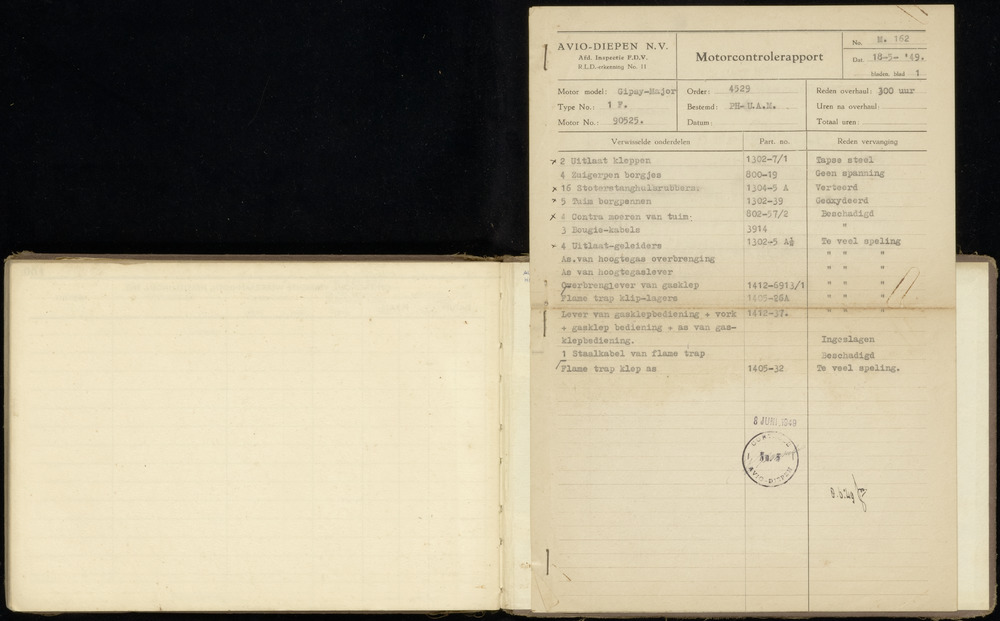 AVIO-DIEPEN N.V.
Afd. Inspectie F.D.V.
R.L.D.-erkenning No. 11
Motorcontrolerapport
No. M. 162
Dat. 18-5- '49.
bladen. blad 1
Motor model: Gipsy-Major
Type No.: 1 F.
Motor No.: 90525.
Order: 4529
Bestemd: PH-U.A.M.
Datum:
Reden overhaul: 300 uur
Uren na overhaul:
Totaal uren:
Verwisselde onderdelen Part. no. Reden vervanging
x 2 Uitlaat kleppen 1302-7/1 Tapse steel
4 Zuigerpen borgjes 800-19 Geen spanning
x 16 Stoterstanghulsrubbers. 1304-5 A Verteerd
x 5 Tuim borgpennen 1302-39 Geöxydeerd
x 4 Contra moeren van tuim. 802-57/2 Beschadigd
3 Bougie-kabels 3914 "
x 4 Uitlaat-geleiders 1302-5 A½ Te veel speling
As.van hoogtegas overbrenging " " "
As van hoogtegaslever " " "
Overbrenglever van gasklep 1412-6913/1 " " "
Flame trap klip-lagers 1405-26A " " "
Lever van gasklepbediening + vork 1412-37. " " "
+ gasklep bediening + as van gas-
klepbediening. Ingeslagen
1 Staalkabel van flame trap Beschadigd
Flame trap klep as 1405-32 Te veel speling.
8 JUNI 1949
AVIO-DIEPEN